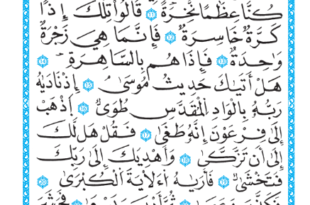 كُنَّا عِظَٰمًا نَّخِرَةً ۝ قَالُوا۟ تِلْكَ إِذًا
كَرَّةٌ خَاسِرَةٌ ۝ فَإِنَّمَا هِيَ زَجْرَةٌ
وَٰحِدَةٌ ۝ فَإِذَا هُم بِٱلسَّاهِرَةِ ۝
هَلْ أَتَىٰكَ حَدِيثُ مُوسَىٰٓ ۝ إِذْ نَادَىٰهُ
رَبُّهُۥ بِٱلْوَادِ ٱلْمُقَدَّسِ طُوًى ۝ ٱذْهَبْ
إِلَىٰ فِرْعَوْنَ إِنَّهُۥ طَغَىٰ ۝ فَقُلْ هَل لَّكَ
إِلَىٰٓ أَن تَزَكَّىٰ ۝ وَأَهْدِيَكَ إِلَىٰ رَبِّكَ
فَتَخْشَىٰ ۝ فَأَرَىٰهُ ٱلْءَايَةَ ٱلْكُبْرَىٰ